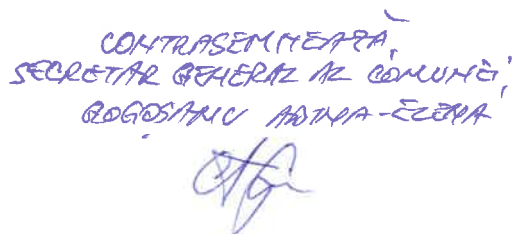 CONTRASEMNEAZĂ,
SECRETAR GENERAL AL COMUNEI,
GOGOȘANU ADINA-ELENA